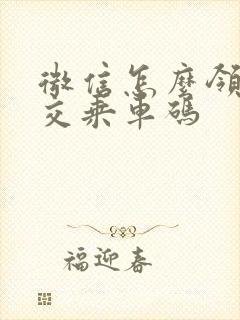 微信怎麼領
交乘車碼
福迎春